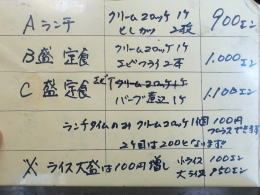 Aランチ クリームコロッケ 1ケ 900エン
ヒレカツ 2枚
B盛定食 クリームコロッケ 1ケ 1,000エン
エビフライ 2本
C盛定食 クリームコロッケ 1ケ 1,100エン
ハーブ 1ケ
ランチタイムのみ クリームコロッケ 1個 100円
プラスできます
2ケ目は200となります
※ライス大盛は100円増し 小ライス 100エン
大ライス 250エン